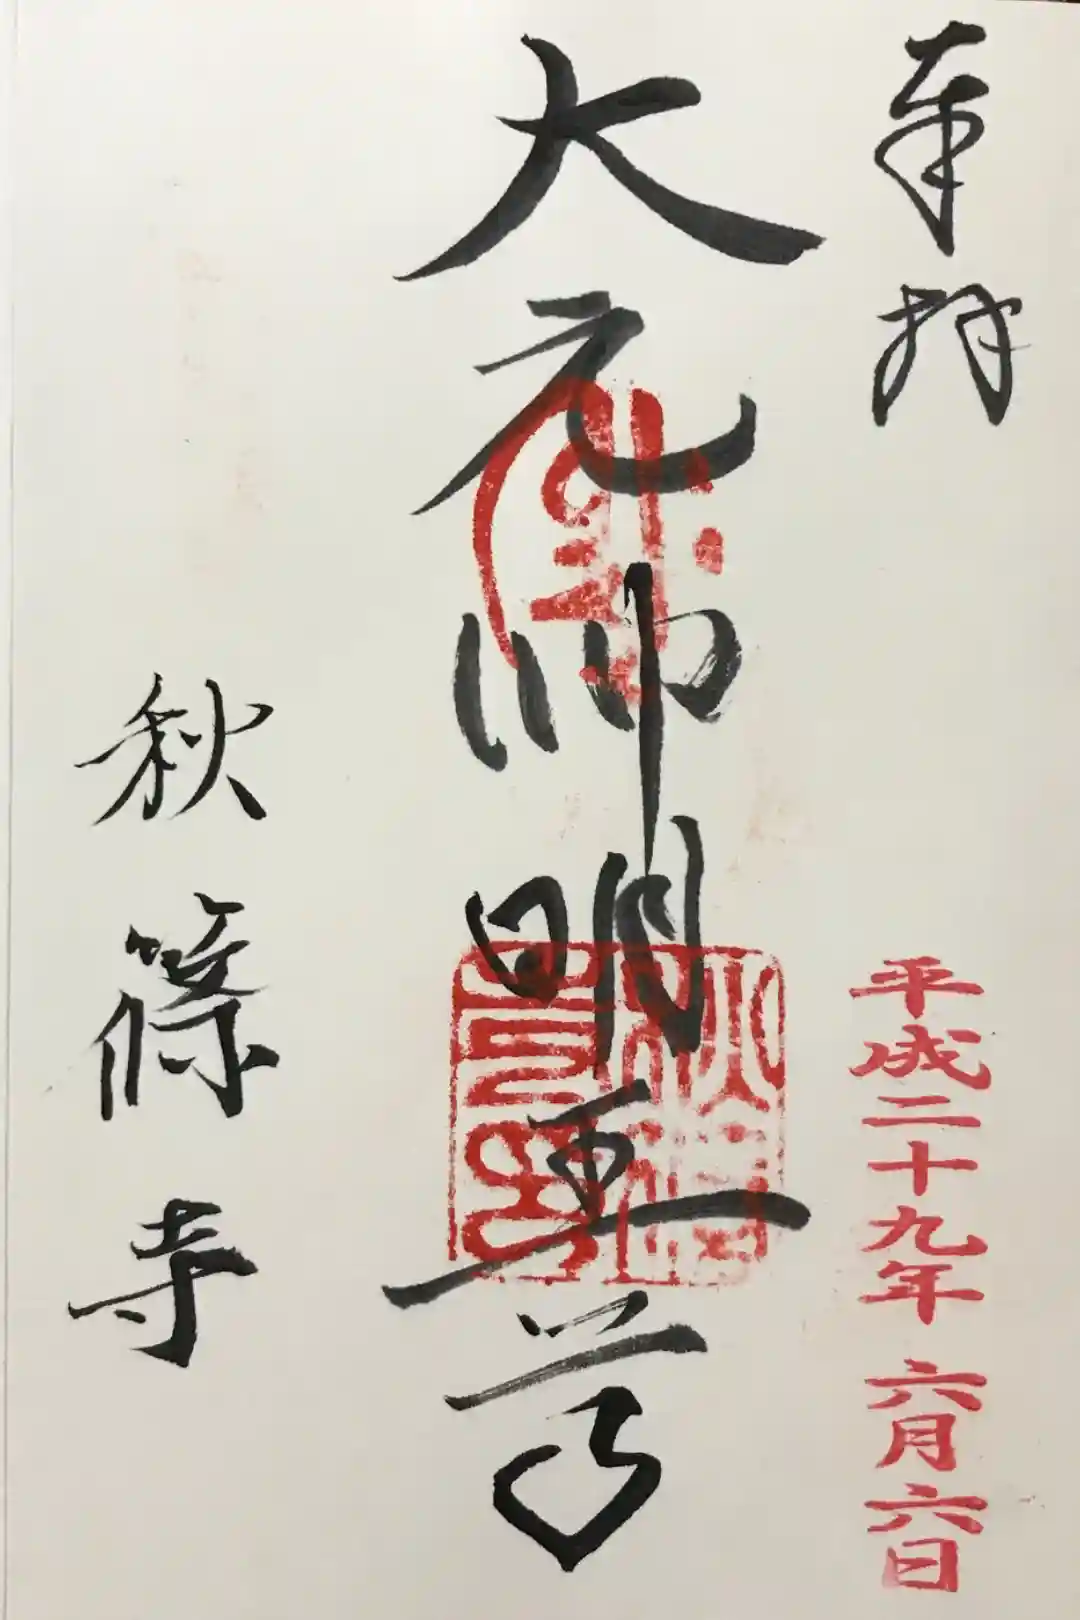 奉拝
平成二十九年 六月六日
大元帥明王尊
秋篠寺